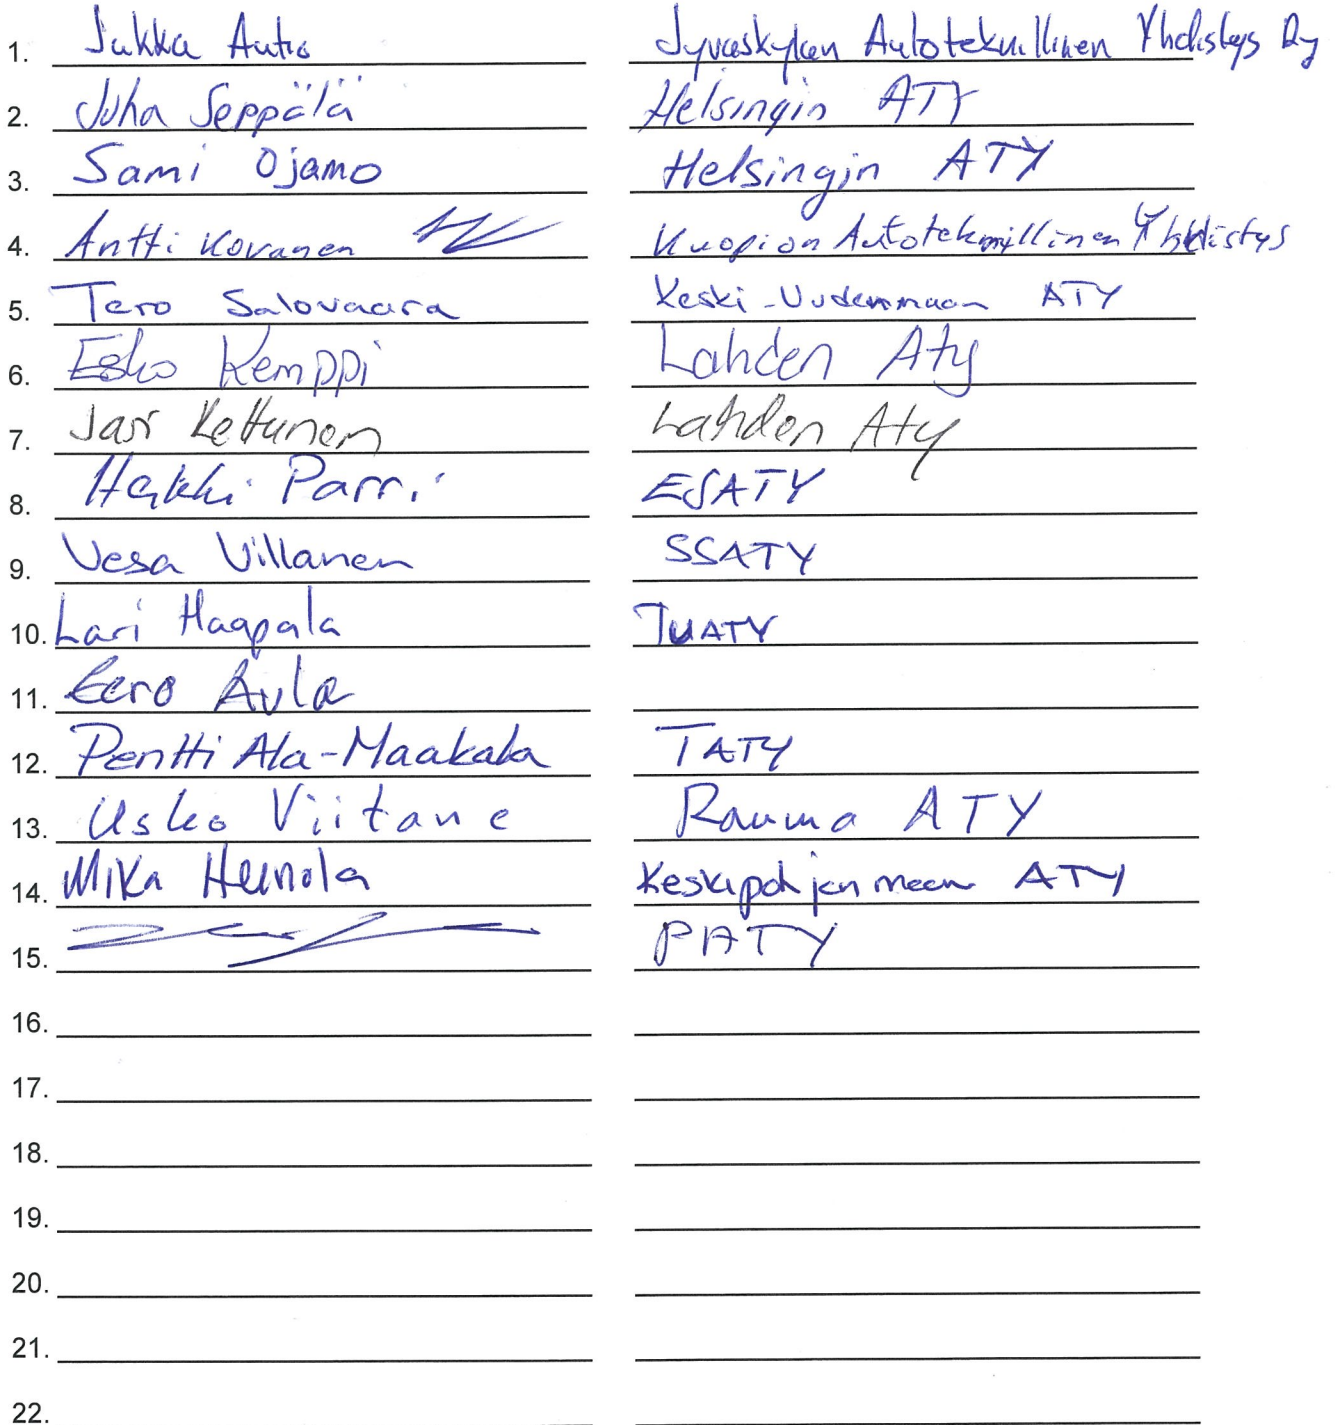 1. Jukka Autio Jyväskylän Autoteknillinen Yhdistys Ry
2. Juha Seppälä Helsingin ATY
3. Sami Ojamo Helsingin ATY
4. Antti Kovanen Kuopion Autoteknillinen Yhdistys
5. Tero Salovaara Keski-Uudenmaan ATY
6. Esko Kemppi Lahden Aty
7. Jari Kettunen Lahden Aty
8. Heikki Parri ESATY
9. Vesa Villanen SSATY
10. Lari Haapala TUATY
11. Eero Aula
12. Pentti Ala-Maakala TATY
13. Usko Viitane Rauma ATY
14. Mika Heinola Keskipohjanmaan ATY
15. PATY
16.
17.
18.
19.
20.
21.
22.